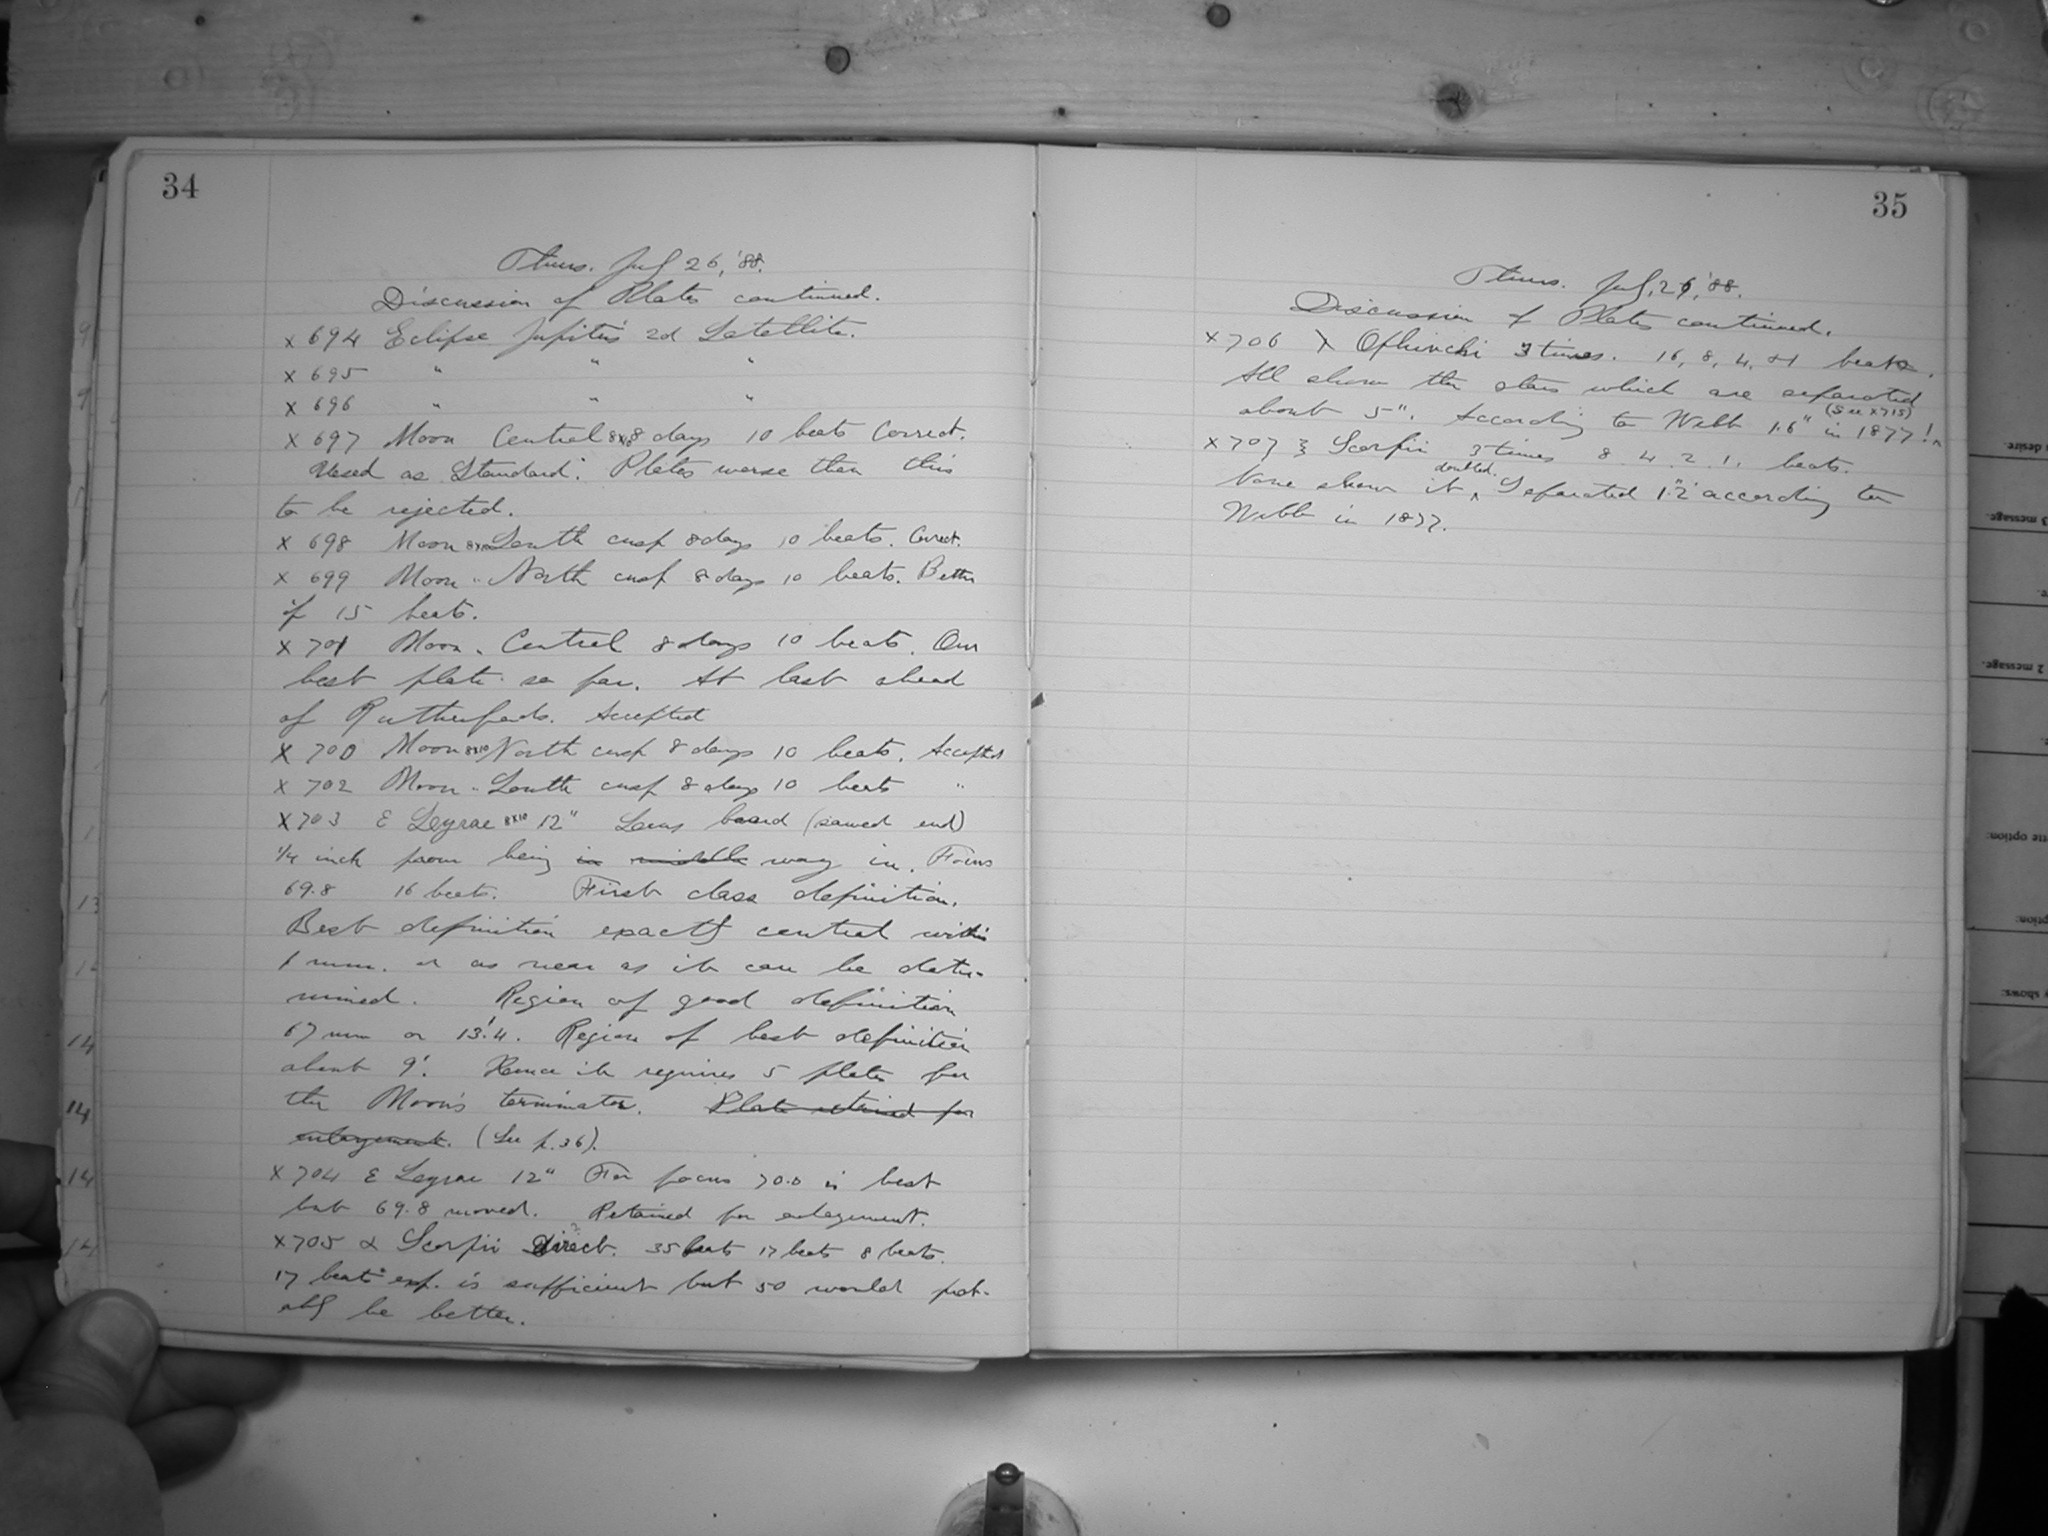 34
Thurs. July 26, '88.
Discussion of Plates continued.
x 694 Eclipse Jupiter's 2d Satellite.
x 695 " " "
x 696 " " "
x 697 Moon Central 8x8 8 days 10 beats Correct.
Used as Standard. Plates worse than this
to be rejected.
x 698 Moon 8x10 South cusp 8 days 10 beats. Correct.
x 699 Moon " North cusp 8 days 10 beats. Better
if 15 beats.
x 701 Moon " Central 8 days 10 beats. Our
best plate so far. At last ahead
of Rutherfurds. Accepted
x 700 Moon 8x10 North cusp 8 days 10 beats. Accepted
x 702 Moon " South cusp 8 days 10 beats "
x 703 ε Leyrae 8x10 12" Lens board (sawed end)
1/4 inch from being in middle way in. Focus
69.8 16 beats. First class definition.
Best definition exactly central within
1 mm. or as near as it can be deter-
mined. Region of good definition
67 mm or 13'.4. Region of best definition
about 9'. Hence it requires 5 plates for
the Moon's terminator. Plate retained for
enlargement. (See p. 36).
x 704 ε Leyrae 12" For focus 70.0 is best
but 69.8 moved. Retained for enlargement.
x 705 α Scorpii Direct. 35 beats 17 beats 8 beats.
17 beats exp. is sufficient but 50 would prob-
ably be better.
35
Thurs. July, 26, '88.
Discussion of Plates continued.
x 706 λ Ophiuchi 3 times. 16, 8, 4, +1 beats.
All show the stars which are separated
about 5". According to Webb 1.6" in 1877! (See x715)
x 707 ξ Scorpii 3 times 8 4 2 1. beats.
None show it doubled. Separated 1".2 according to
Webb in 1877.